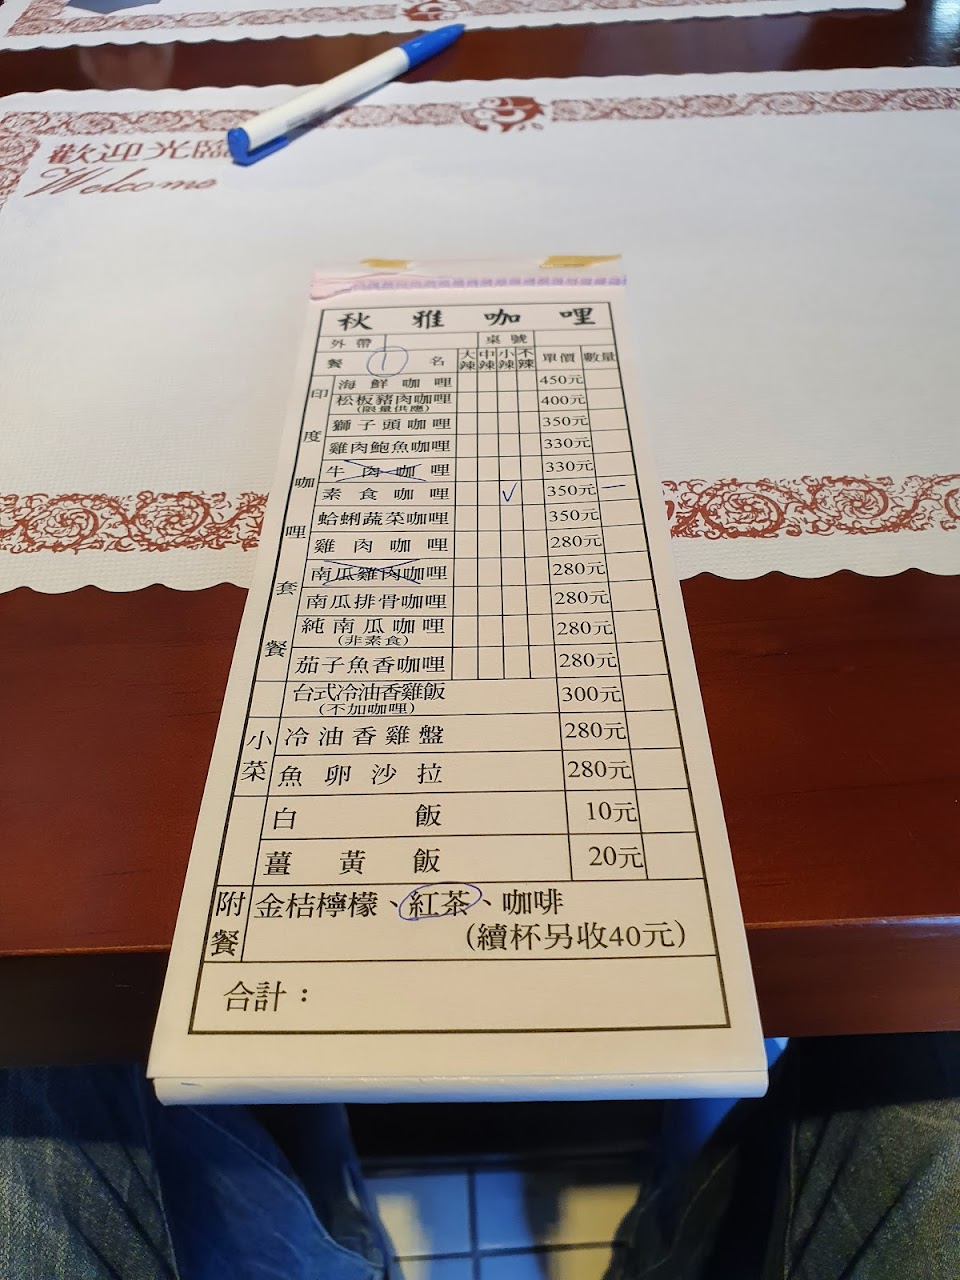 歡迎光臨
Welcome
秋雅咖哩
外帶 桌號
餐名 1 大辣 中辣 小辣 不辣 單價 數量
印度咖哩套餐
海鮮咖哩 450元
松板豬肉咖哩 400元
(限量供應)
獅子頭咖哩 350元
雞肉鮑魚咖哩 330元
牛肉咖哩 330元
素食咖哩 ✓ 350元 一
蛤蜊蔬菜咖哩 350元
雞肉咖哩 280元
南瓜雞肉咖哩 280元
南瓜排骨咖哩 280元
純南瓜咖哩 280元
(非素食)
茄子魚香咖哩 280元
台式冷油香雞飯 300元
(不加咖哩)
小菜
冷油香雞盤 280元
魚卵沙拉 280元
白飯 10元
薑黃飯 20元
附餐 金桔檸檬、紅茶、咖啡
(續杯另收40元)
合計：